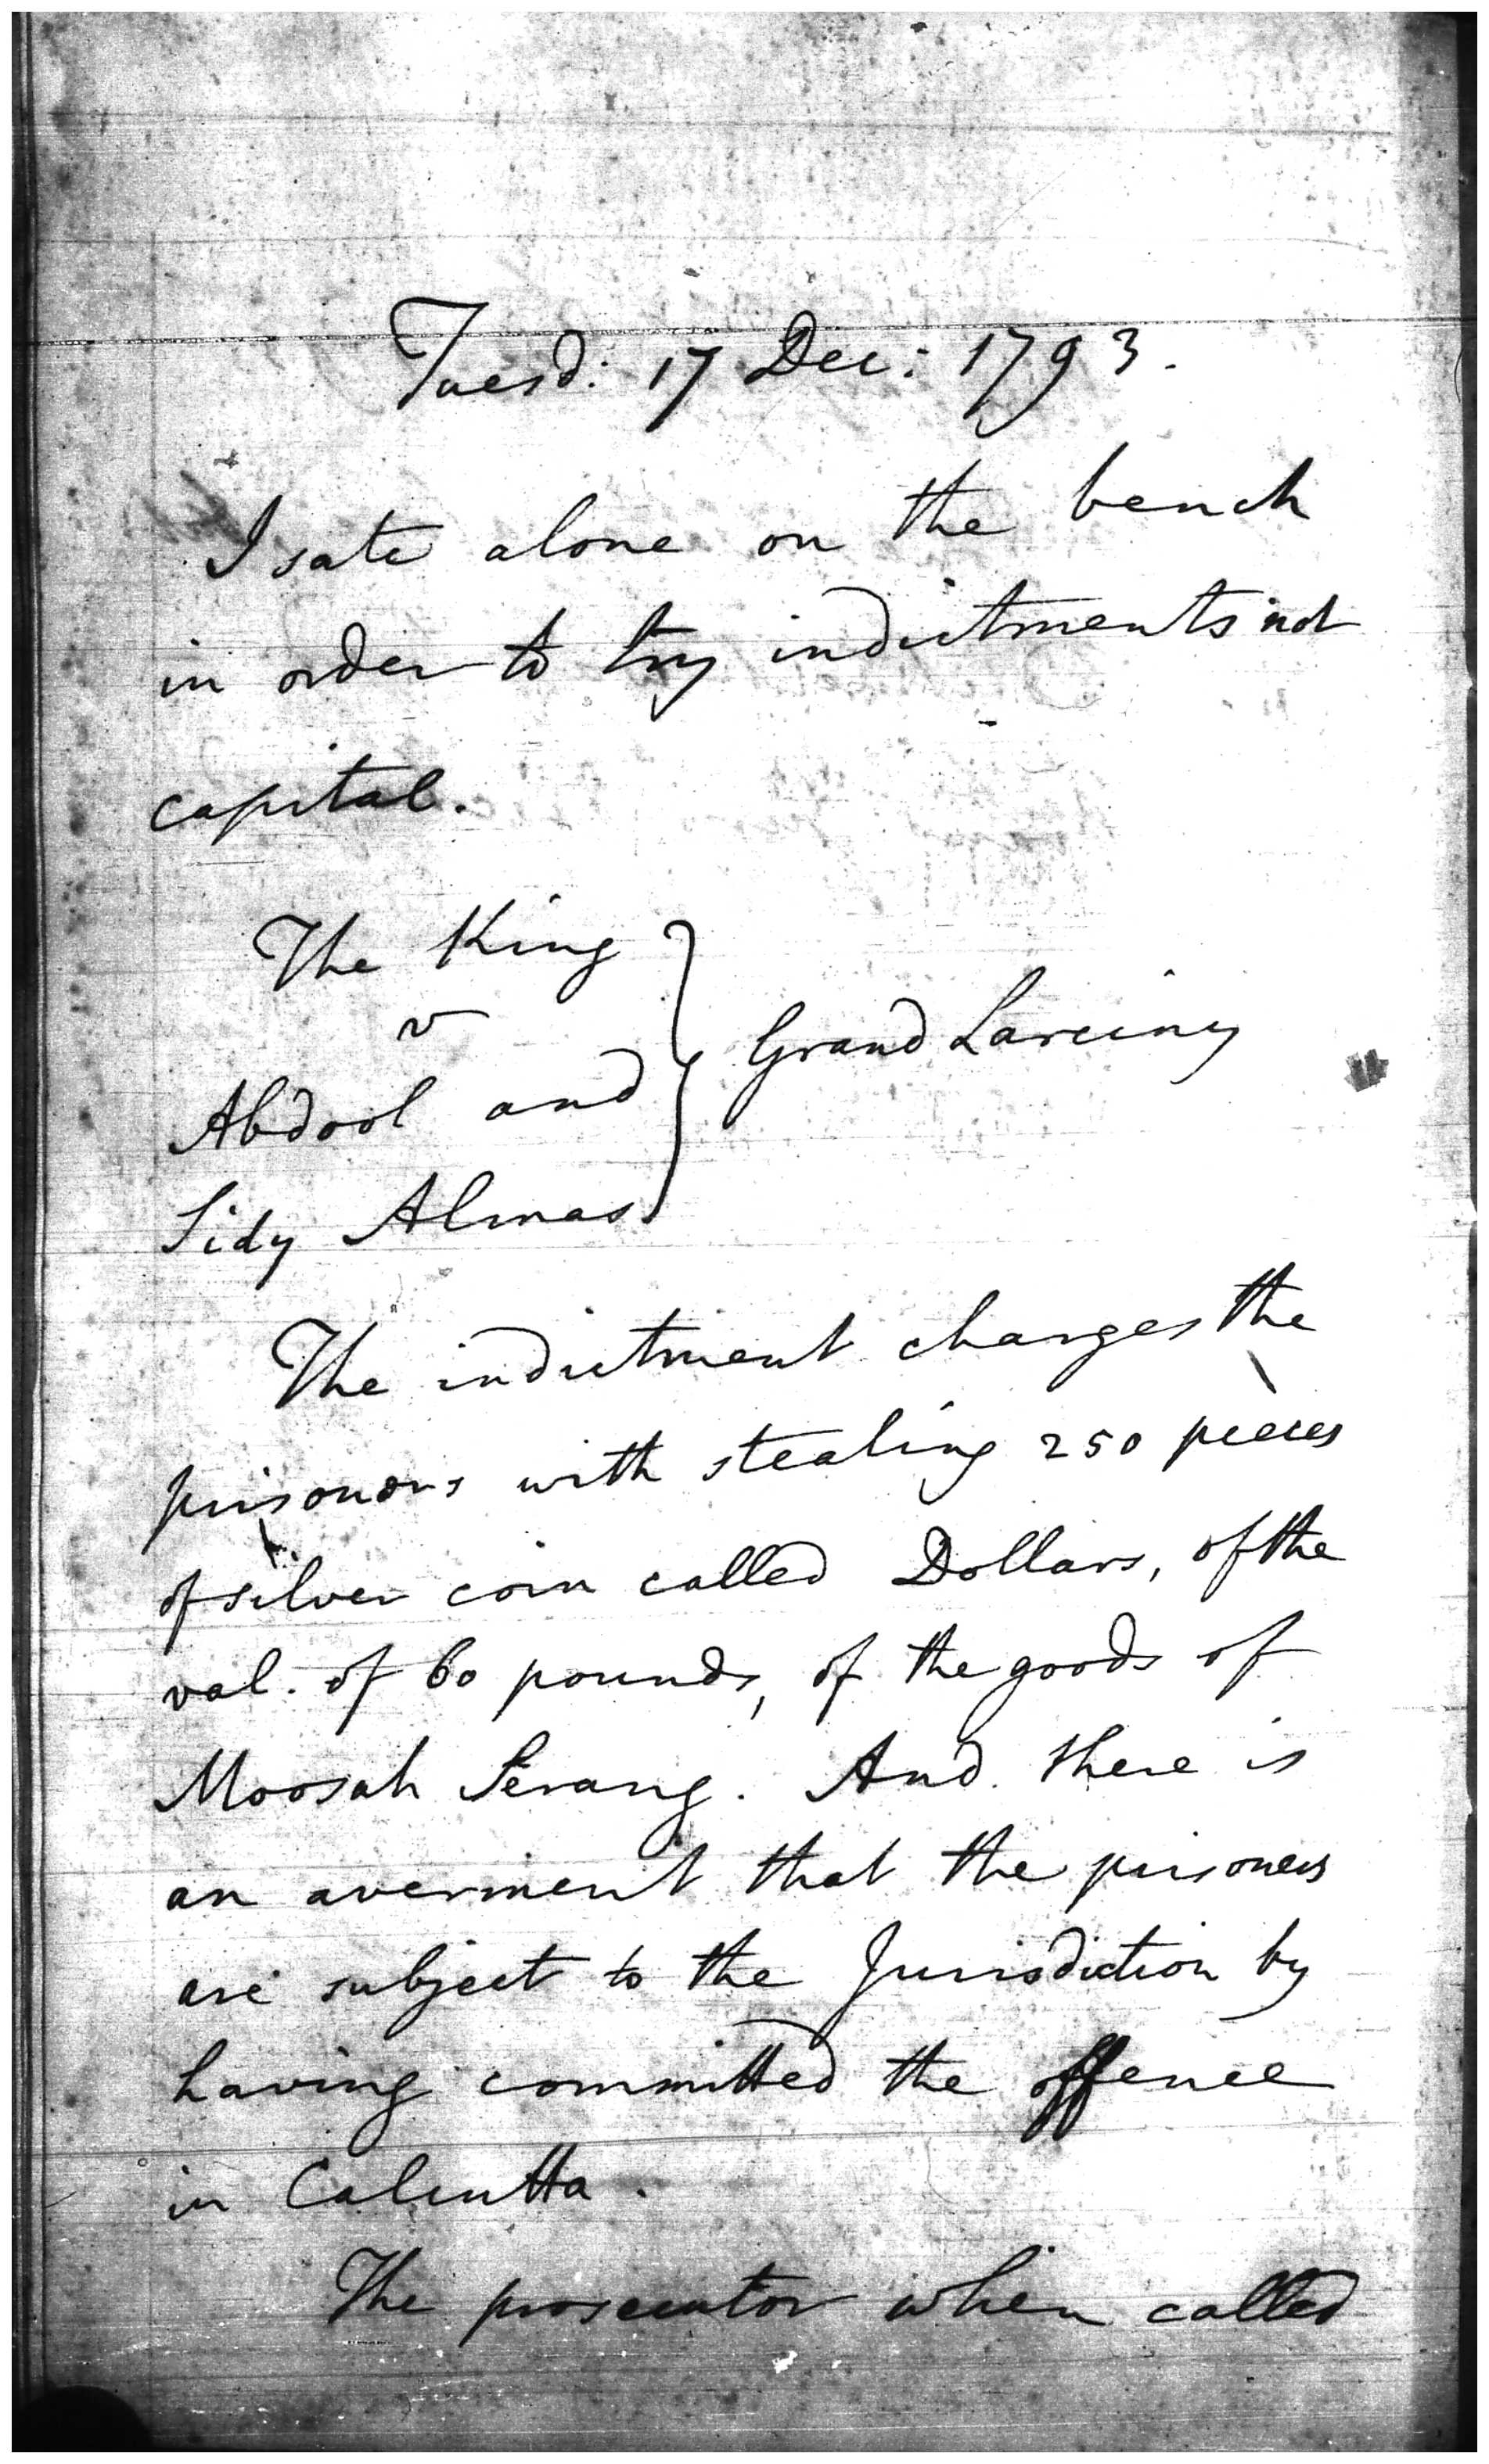 Tuesd: 17 Dec: 1793.
I sate alone on the bench
in order to try indictments not
capital.
The King
v
Abdool and
Sidy Almas
Grand Larciny
The indictment charges the
prisoners with stealing 250 pieces
of silver coin called Dollars, of the
val. of 60 pounds, of the goods of
Moosah Serang. And there is
an averment that the prisoners
are subject to the Jurisdiction by
having committed the offence
in Calcutta.
The prosecutor when called